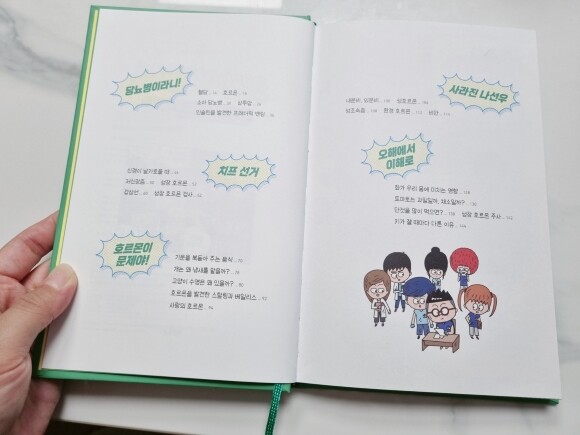 당뇨병이라니!
혈당 호르몬
소아 당뇨병 상무감
인슐린을 발견한 프레더릭 밴팅
치프 선거
신경이 날카로울 때
성장 호르몬
성장 호르몬 검사
호르몬이
문제야!
기운을 북돋아 주는 음식
개는 왜 냄새를 맡을까?
고양이 수염은 왜 있을까?
호르몬을 발견한 스탈링과 베일리스
사랑의 호르몬
사라진 나선우
내분비, 외분비 성호르몬
남조숙증 환경 호르몬 비만
오해에서
이해로
향가 우리 몸에 미치는 영향
토마토는 과일일까, 채소일까?
단것을 많이 먹으면? 성장 호르몬 주사
키가 잴 때마다 다른 이유